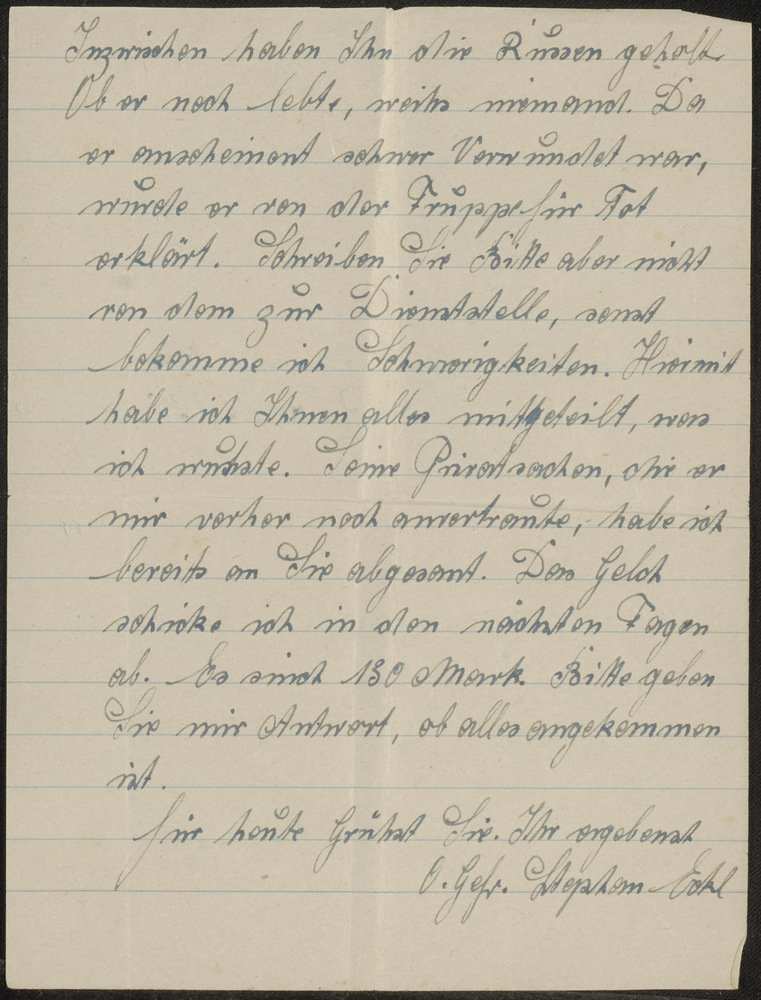 Inzwischen haben Ihn die Russen geholt.
Ob er noch lebte, weihs niemand. Da
er anscheinent schwer Verwundet war,
wurde er von der Truppe für Tot
erklärt. Schreiben Sie Bitte aber nicht
von dem zur Dienststelle, sonst
bekomme ich Schwierigkeiten. Hiermit
habe ich Ihnen alles mitgeteilt, was
ich wuhste. Seine Privatsachen, die er
mir vorher noch anvertraute, habe ich
bereits an Sie abgesant. Das Geld
schicke ich in den nächsten Tagen
ab. Es sind 130 Mark. Bitte geben
Sie mir Antwort, ob alles angekommen
ist.
für heute Grühst Sie. Ihr ergebenst
O. Gefr. Stephan Eckl